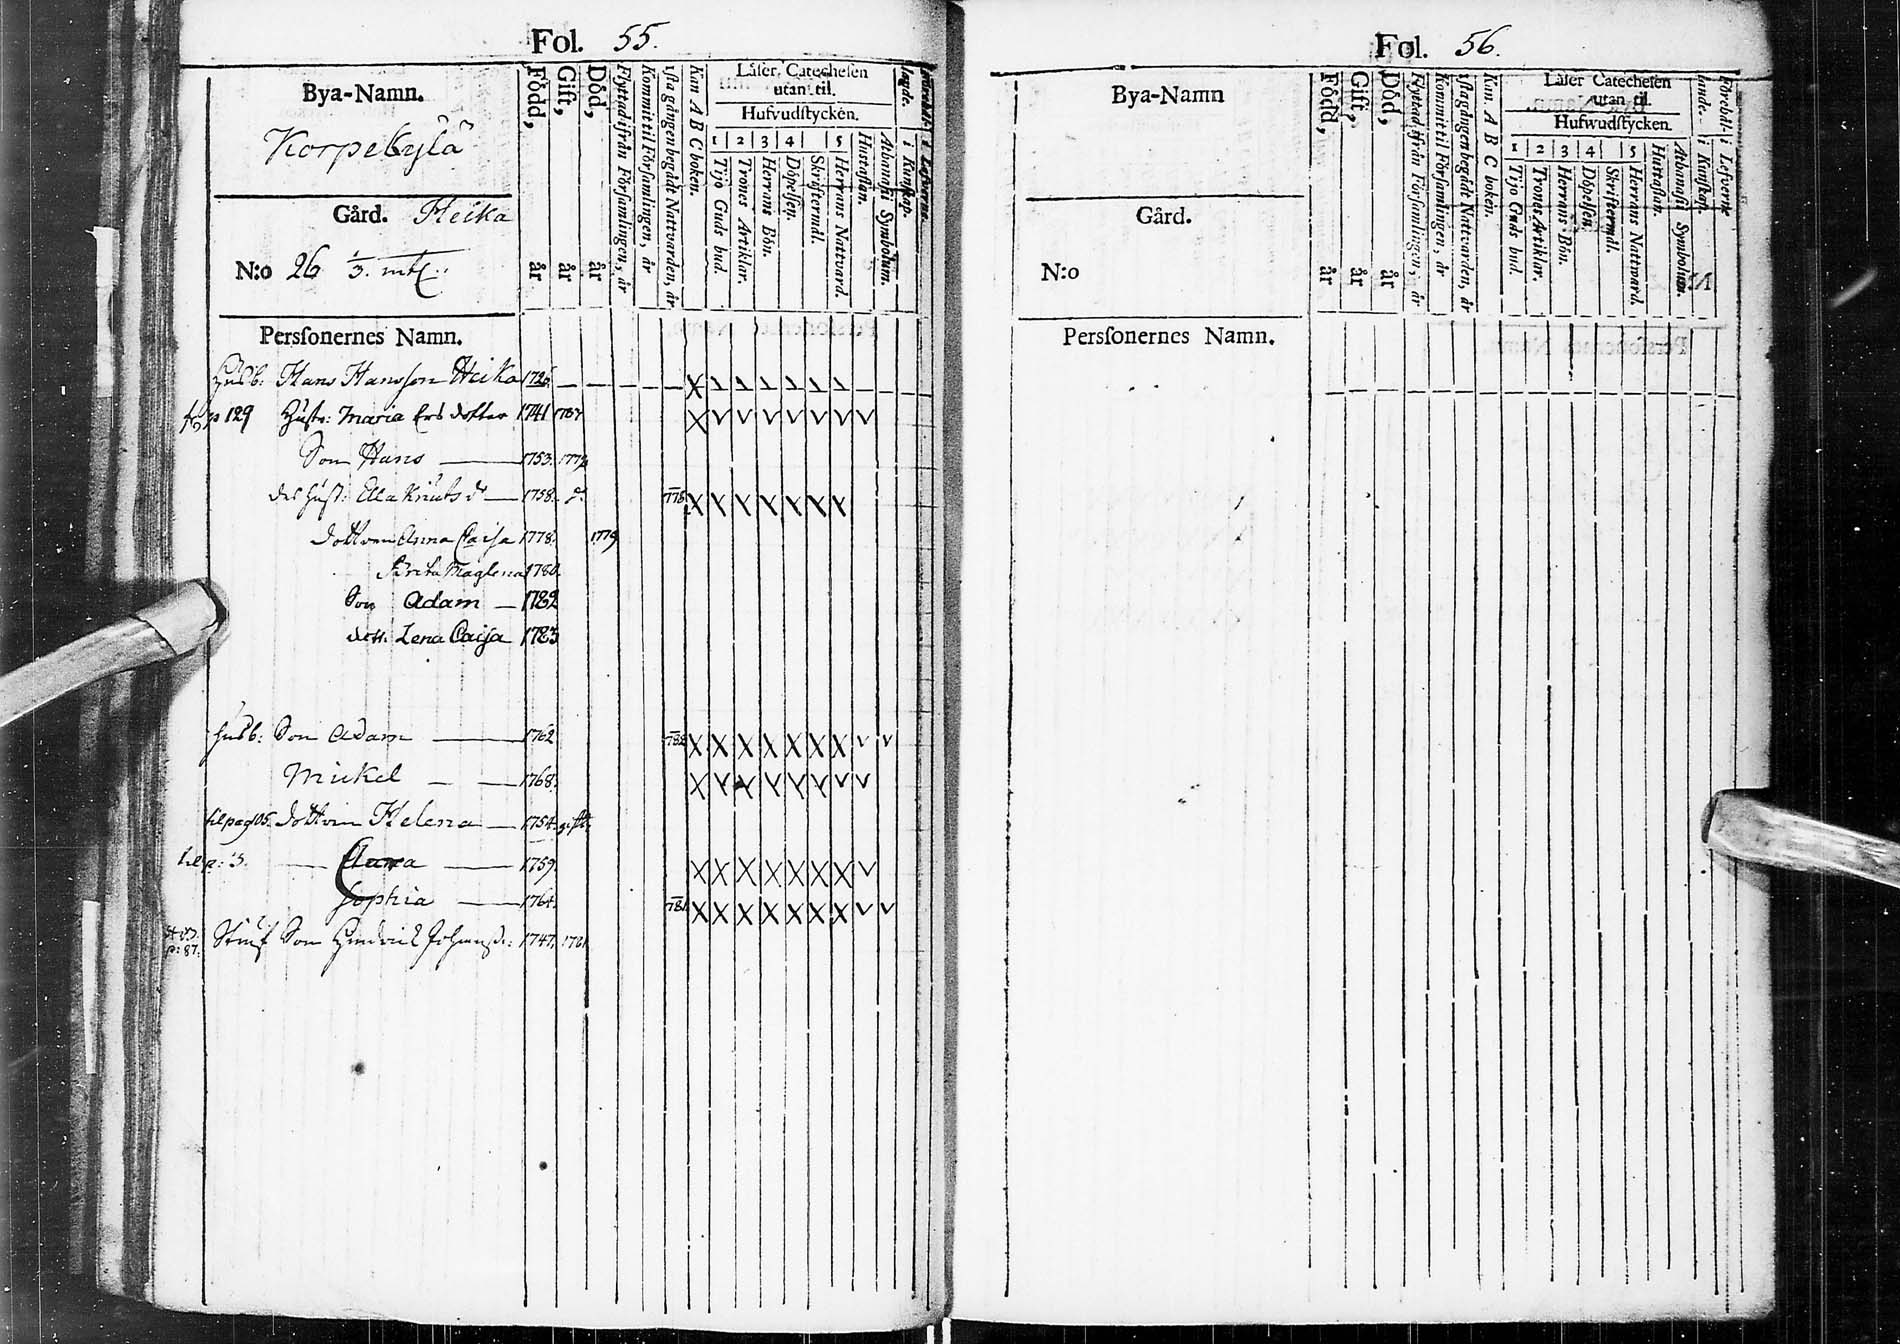 Fol. 55.
Bya-Namn.
Korpebylä
Gård. Heika
N:o 26 1/3. mtl.
Född, år
Gift, år
Död, år
Flyttad ifrån Församlingen, år
Kommit til Församlingen, år
1sta gången begådt Nattvarden, år
Kan A B C boken.
Läser Catechesen
utan til.
Hufvudstycken.
1 2 3 4 5
Tijo Guds bud.
Trones Artiklar.
Herrans Bön.
Döpelsen.
Skriftermål.
Herrans Nattvard.
Hustaflan.
Athanasii Symbolum.
i Kunskap.
i Lefverne
Personernes Namn.
Husb: Hans Hansson Heika 1726.
p 129 Hustr: Maria Ers dotter 1741
Son Hans 1753.
des Hust: Ella Knuts dr 1758. 778
dottren Anna Caisa 1778. 1779
Brita Maglena 1780.
Son Adam 1782
dott. Lena Caisa 1783
Husb: Son Adam 1762 782
Mickel 1768.
til pag 105. dottren Helena 1754. gift.
Anna 1759.
Sophia 1764. 781
p: 87. Stiuf Son Hindric Johanss: 1747.
Fol. 56.
Bya-Namn
Gård.
N:o
Född, år
Gift, år
Död, år
Flyttad ifrån Församlingen, år
Kommit til Församlingen, år
1sta gången begådt Nattvarden, år
Kan A B C boken.
Läser Catechesen
utan til.
Hufwudstycken.
1 2 3 4 5
Tijo Guds bud.
Trones Artiklar.
Herrans Bön.
Döpelsen.
Skriftermål.
Herrans Nattward.
Hustaflan.
Athanasii Symbolum.
i Kunskap.
i Lefverne
Personernes Namn.